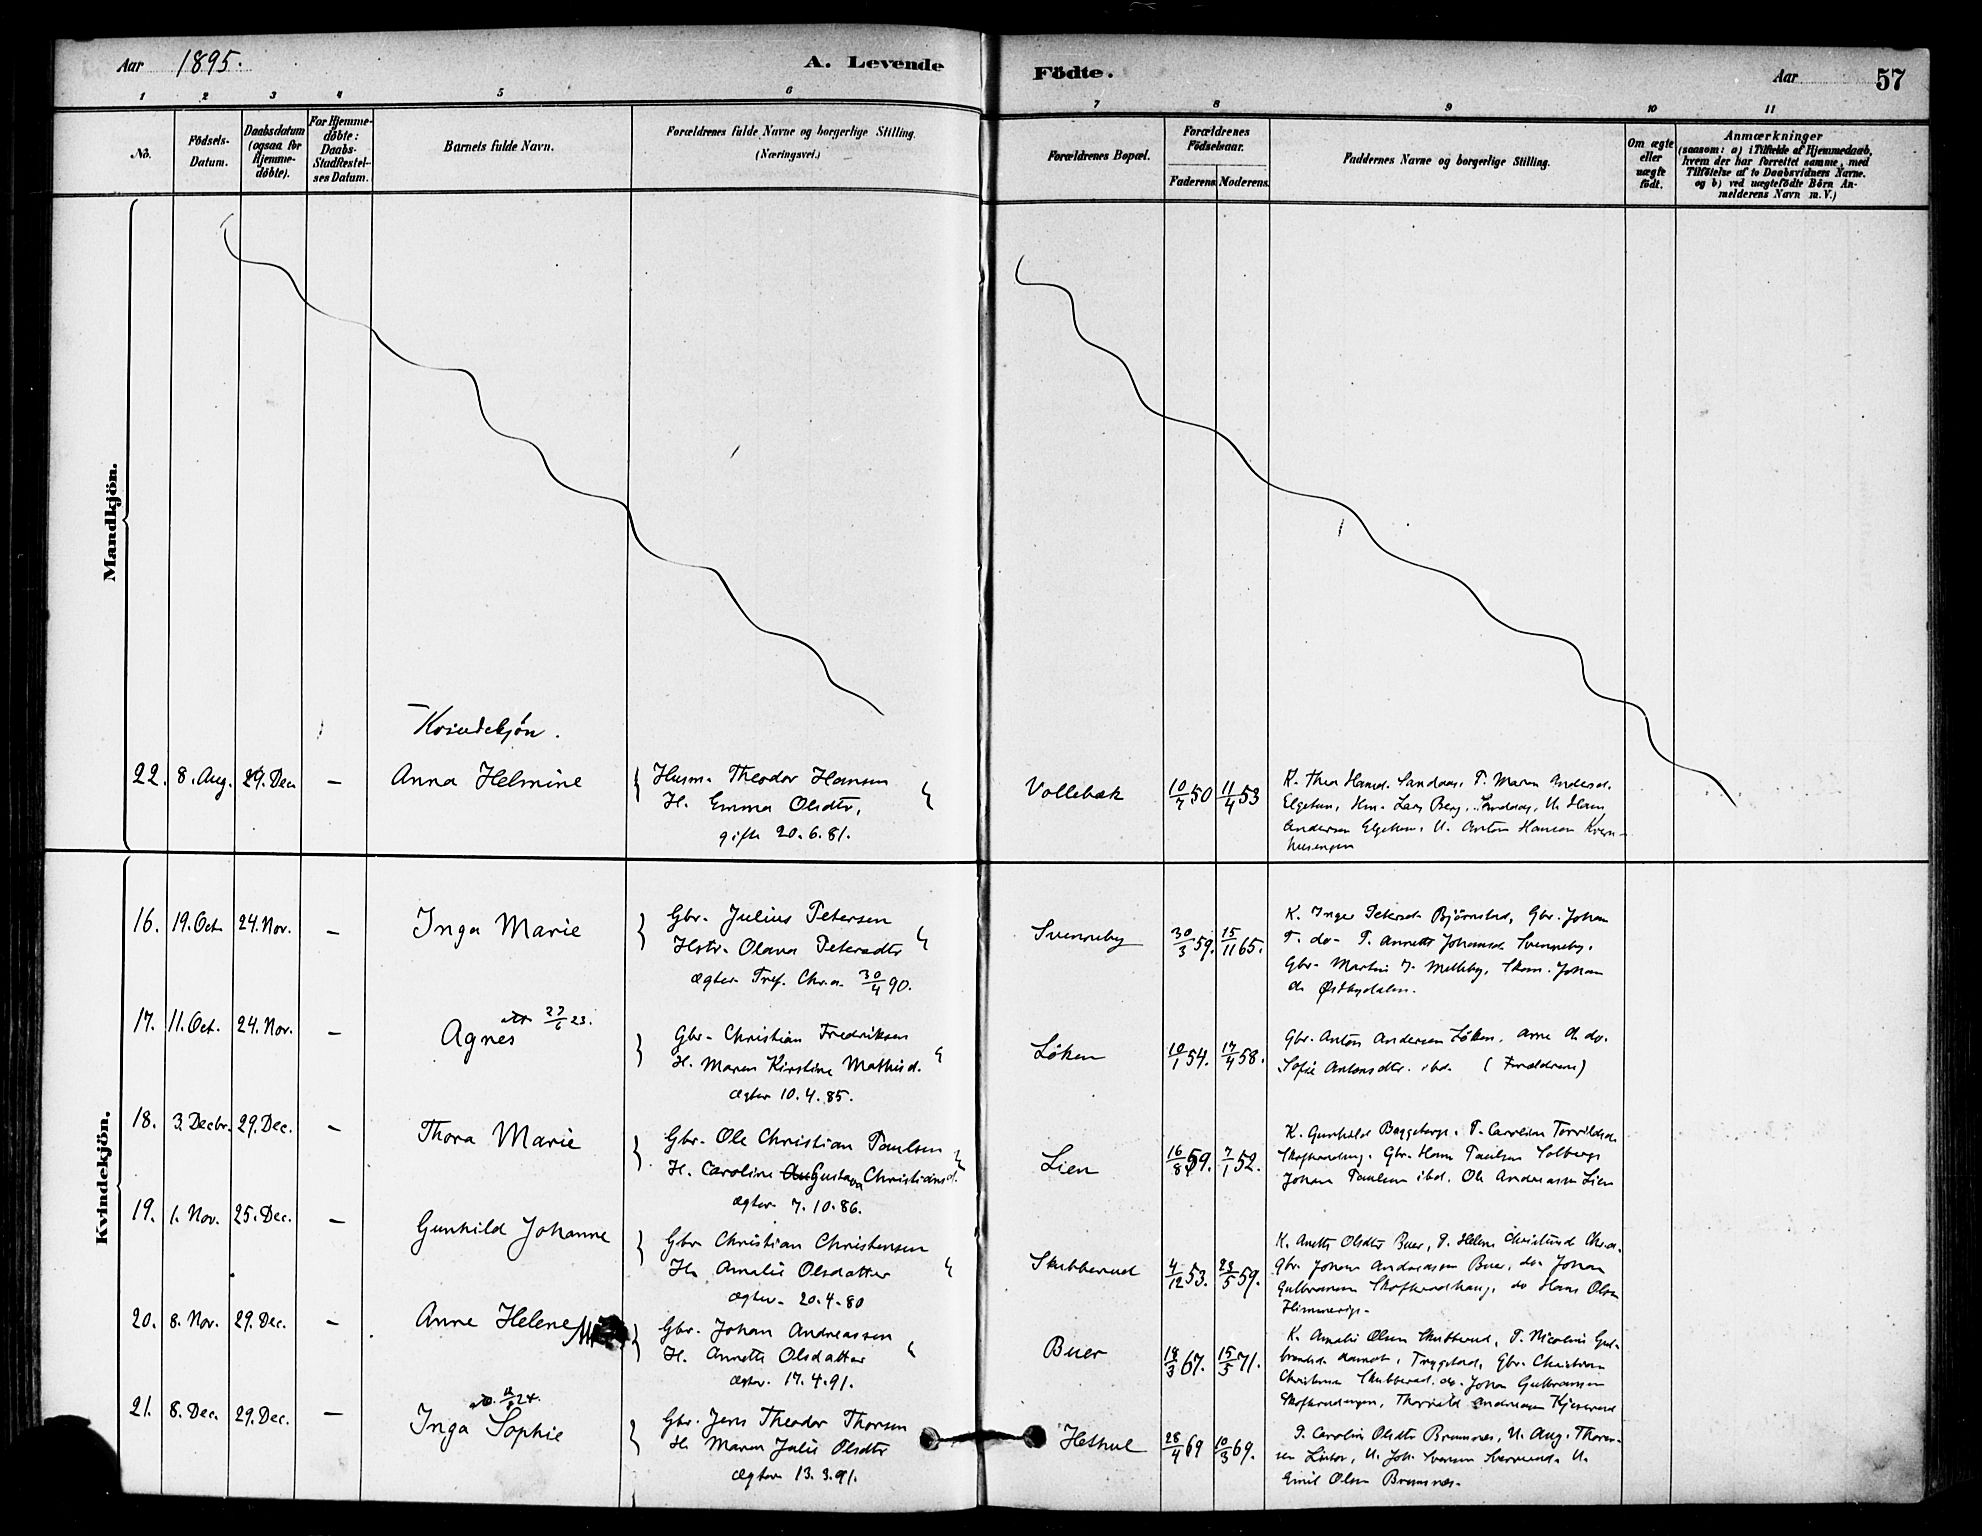 Aar 1895. A. Levende Födte. Aar 57
1 2 3 4 5 6 7 8 9 10 11
No. Födsels-Datum. Daabsdatum (ogsaa for Hjemme-döbte). For Hjemme-döbte: Daabs-Stadfæstel-ses Datum. Barnets fulde Navn. Forældrenes fulde Navne og borgerlige Stilling. (Næringsvei.) Forældrenes Bopæl. Forældrenes Födselsaar. Faderens Moderens. Faddernes Navne og borgerlige Stilling. Om ægte eller uægte födt. Anmærkninger (saasom: a) i Tilfælde af Hjemmedaab, hvem der har forrettet samme, med Tilföielse af to Daabsvidners Navne. og b) ved uægtefödte Börn An-melderens Navn m. V.)
Mandkjön.
Kvindekjön.
22. 8. Aug. 29. Dec. — Anna Helmine
Husm. Theodor Hansen
H. Emma Olsdtr,
gifte 20.6.81.
Vollebæk 10/7 50 11/4 53
K. Thea Hansd. Sandaas, P. Maren Andersd.
Elgetun, Hm. Lars Berg, U. Hans
Andersen Elgetun, U. Anton Hansen
Kvindekjön.
16. 19. Oct. 24. Nov. — Inga Marie
Gbr. Julius Petersen
Hstr. Olava Petersdtr
Ægtev. Tref. Chra. 30/4 90.
Svenneby 30/3 59. 15/11 65.
K. Inger Petersd. Björnstad, Gbr. Johan
P. do. P. Annette Johansd. Svenneby.
Gbr. Martin J. Melleby, Skom. Johan
do Østbydalen.
17. 11. Oct. 24. Nov. — Agnes
att 27/6 23.
Gbr. Christian Fredriksen
H. Maren Kirstine Mathisd.
Ægtev 10.4.85.
Löken 10/1 54. 17/4 58.
Gbr. Anton Andersen Löken, Arne A. do.
Sofie Antonsdtr. ibd. (Forældrene)
18. 3. Decbr. 29. Dec. — Thora Marie
Gbr. Ole Christian Paulsen
H. Caroline Gustava Christiansd.
Ægtev. 7.10.86.
Lien 16/8 59. 7/1 52.
K. Gunhild Baggetorp. P. Caroline Torvildsd.
Gbr. Hans Paulsen Solberg,
Johan Paulsen ibd. Ole Andreassen Lien
19. 1. Nov. 25. Dec. — Gunhild Johanne
Gbr Christian Christensen
H. Amalie Olsdatter
Ægtev. 20.4.80
Skubberud 4/12 53. 23/5 59.
K. Anette Olsdtr Buer, P. Helene Christensd Chra.
Gbr. Johan Andreassen Buer, do Johan
Gulbransen do Hans Olsen
Himmerigs.
20. 8. Nov. 29. Dec. — Anne Helene
Gbr. Johan Andreassen
H. Annette Olsdatter
Ægtev. 17.4.91.
Buer 18/3 67. 15/5 71.
K. Amalie Olsen Skubberud, P. Nicoline Gul-
Trygstad, Gbr. Christian
Christensen Skubberud. do. Johan Gulbransen
Thorvald Andreassen
21. 8. Dec. 29. Dec. — Inga Sophie
Gbr. Jens Theodor Thorsen
H. Maren Julie Olsdtr
Ægtev. 13.3.91.
28/4 69 10/3 69.
P. Caroline Olsdtr Bramnæs, U. Aug. Thor-
U. Joh. Iversen U.
Emil Olsen Bramnæs.